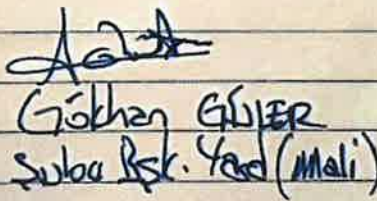 Gökhan GÜLER
Şube Bşk. Yard (Mali)